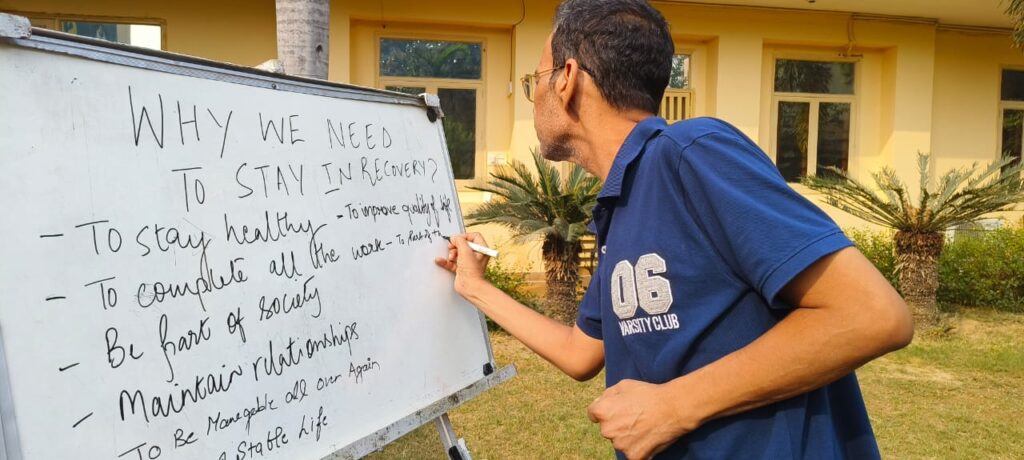 WHY WE NEED
TO STAY IN RECOVERY?
- To stay healthy - To improve quality of life
- To complete all the work - To
- Be part of society
- Maintain relationships
To Be Manegable all over Again
Stable Life
06
VARSITY CLUB